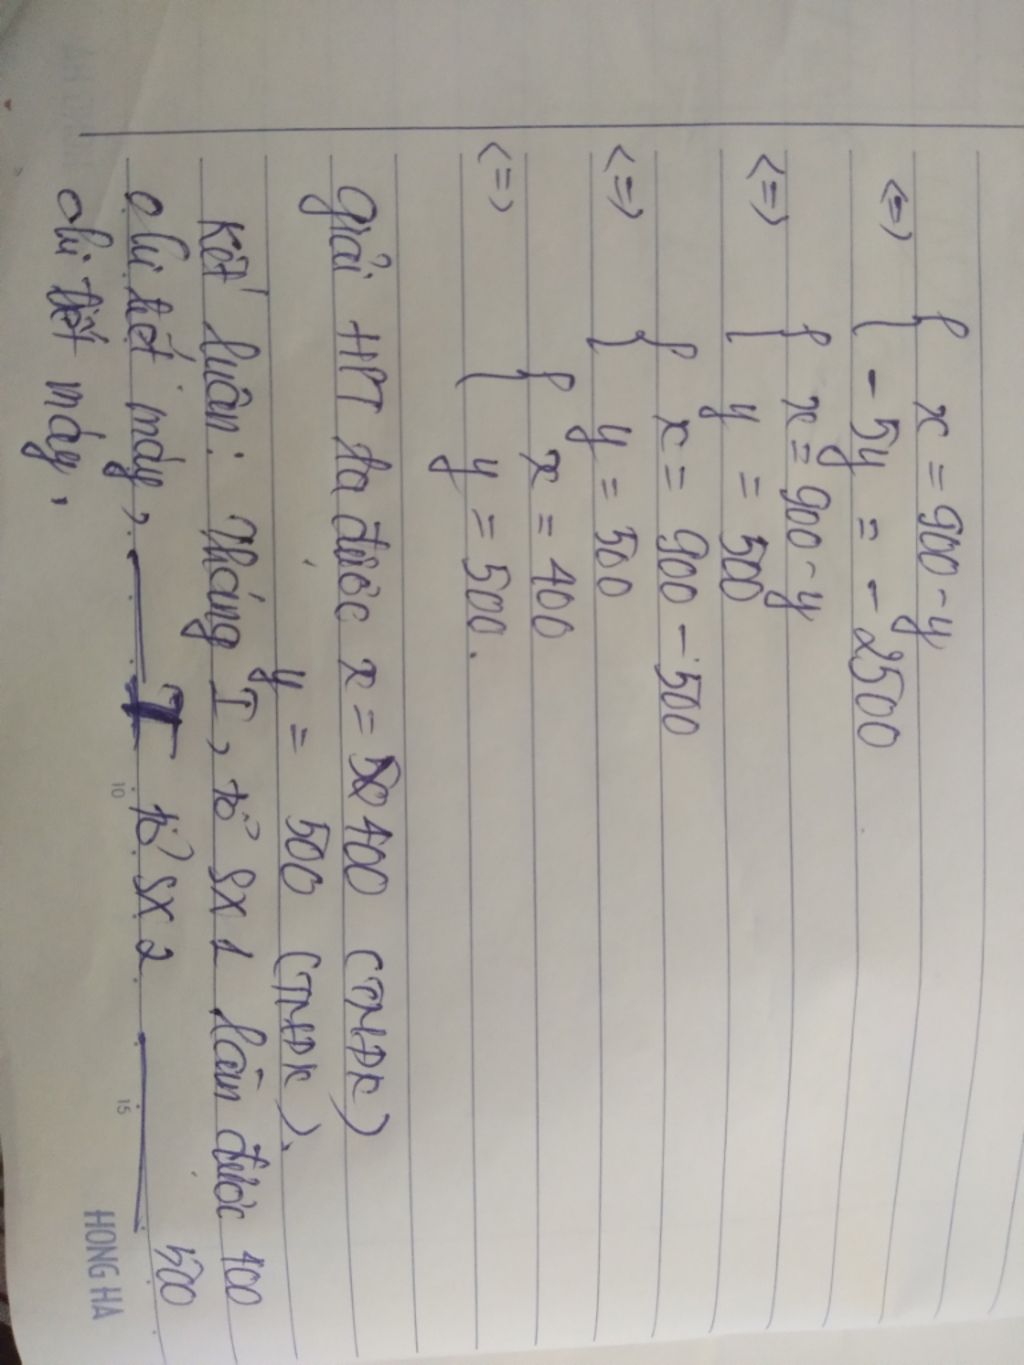 x = 900 - y
<=> { - 5y = - 2500
{ x = 900 - y
<=> y = 500
{ x = 900 - 500
<=> y = 500
{ x = 400
<=> y = 500.
Giải HPT ta được x = 400 (TMĐK)
y = 500 (TMĐK).
Kết luận: Tháng I, tổ SX 1 làm được 400
chi tiết máy, — I tổ SX 2 — 500
chi tiết máy.
10
15
HONG HA